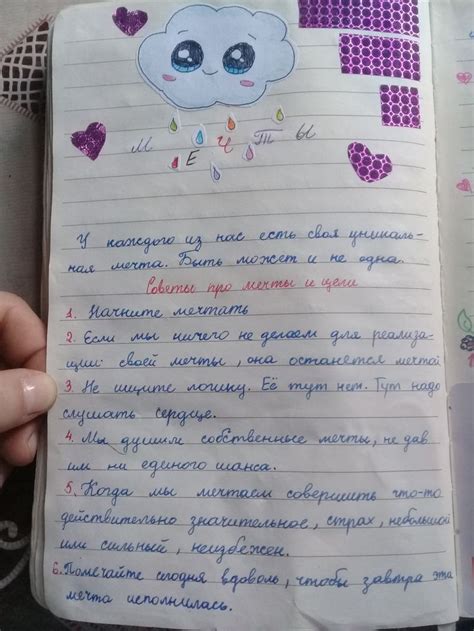 М Е Ч Т Ы
У каждого из нас есть своя уникаль-
ная мечта. Быть может и не одна.
Советы про мечты и цели
1. Начните мечтать
2. Если мы ничего не делаем для реализа-
ции своей мечты, она останется мечтой
3. Не ищите логику. Её тут нет. Тут надо
слушать сердце.
4. Мы душим собственные мечты, не дав
им ни единого шанса.
5. Когда мы мечтаем совершить что-то
действительно значительное, страх, небольшой
или сильный, неизбежен.
6. Помечтайте сегодня вдоволь, чтобы завтра эта
мечта исполнилась.